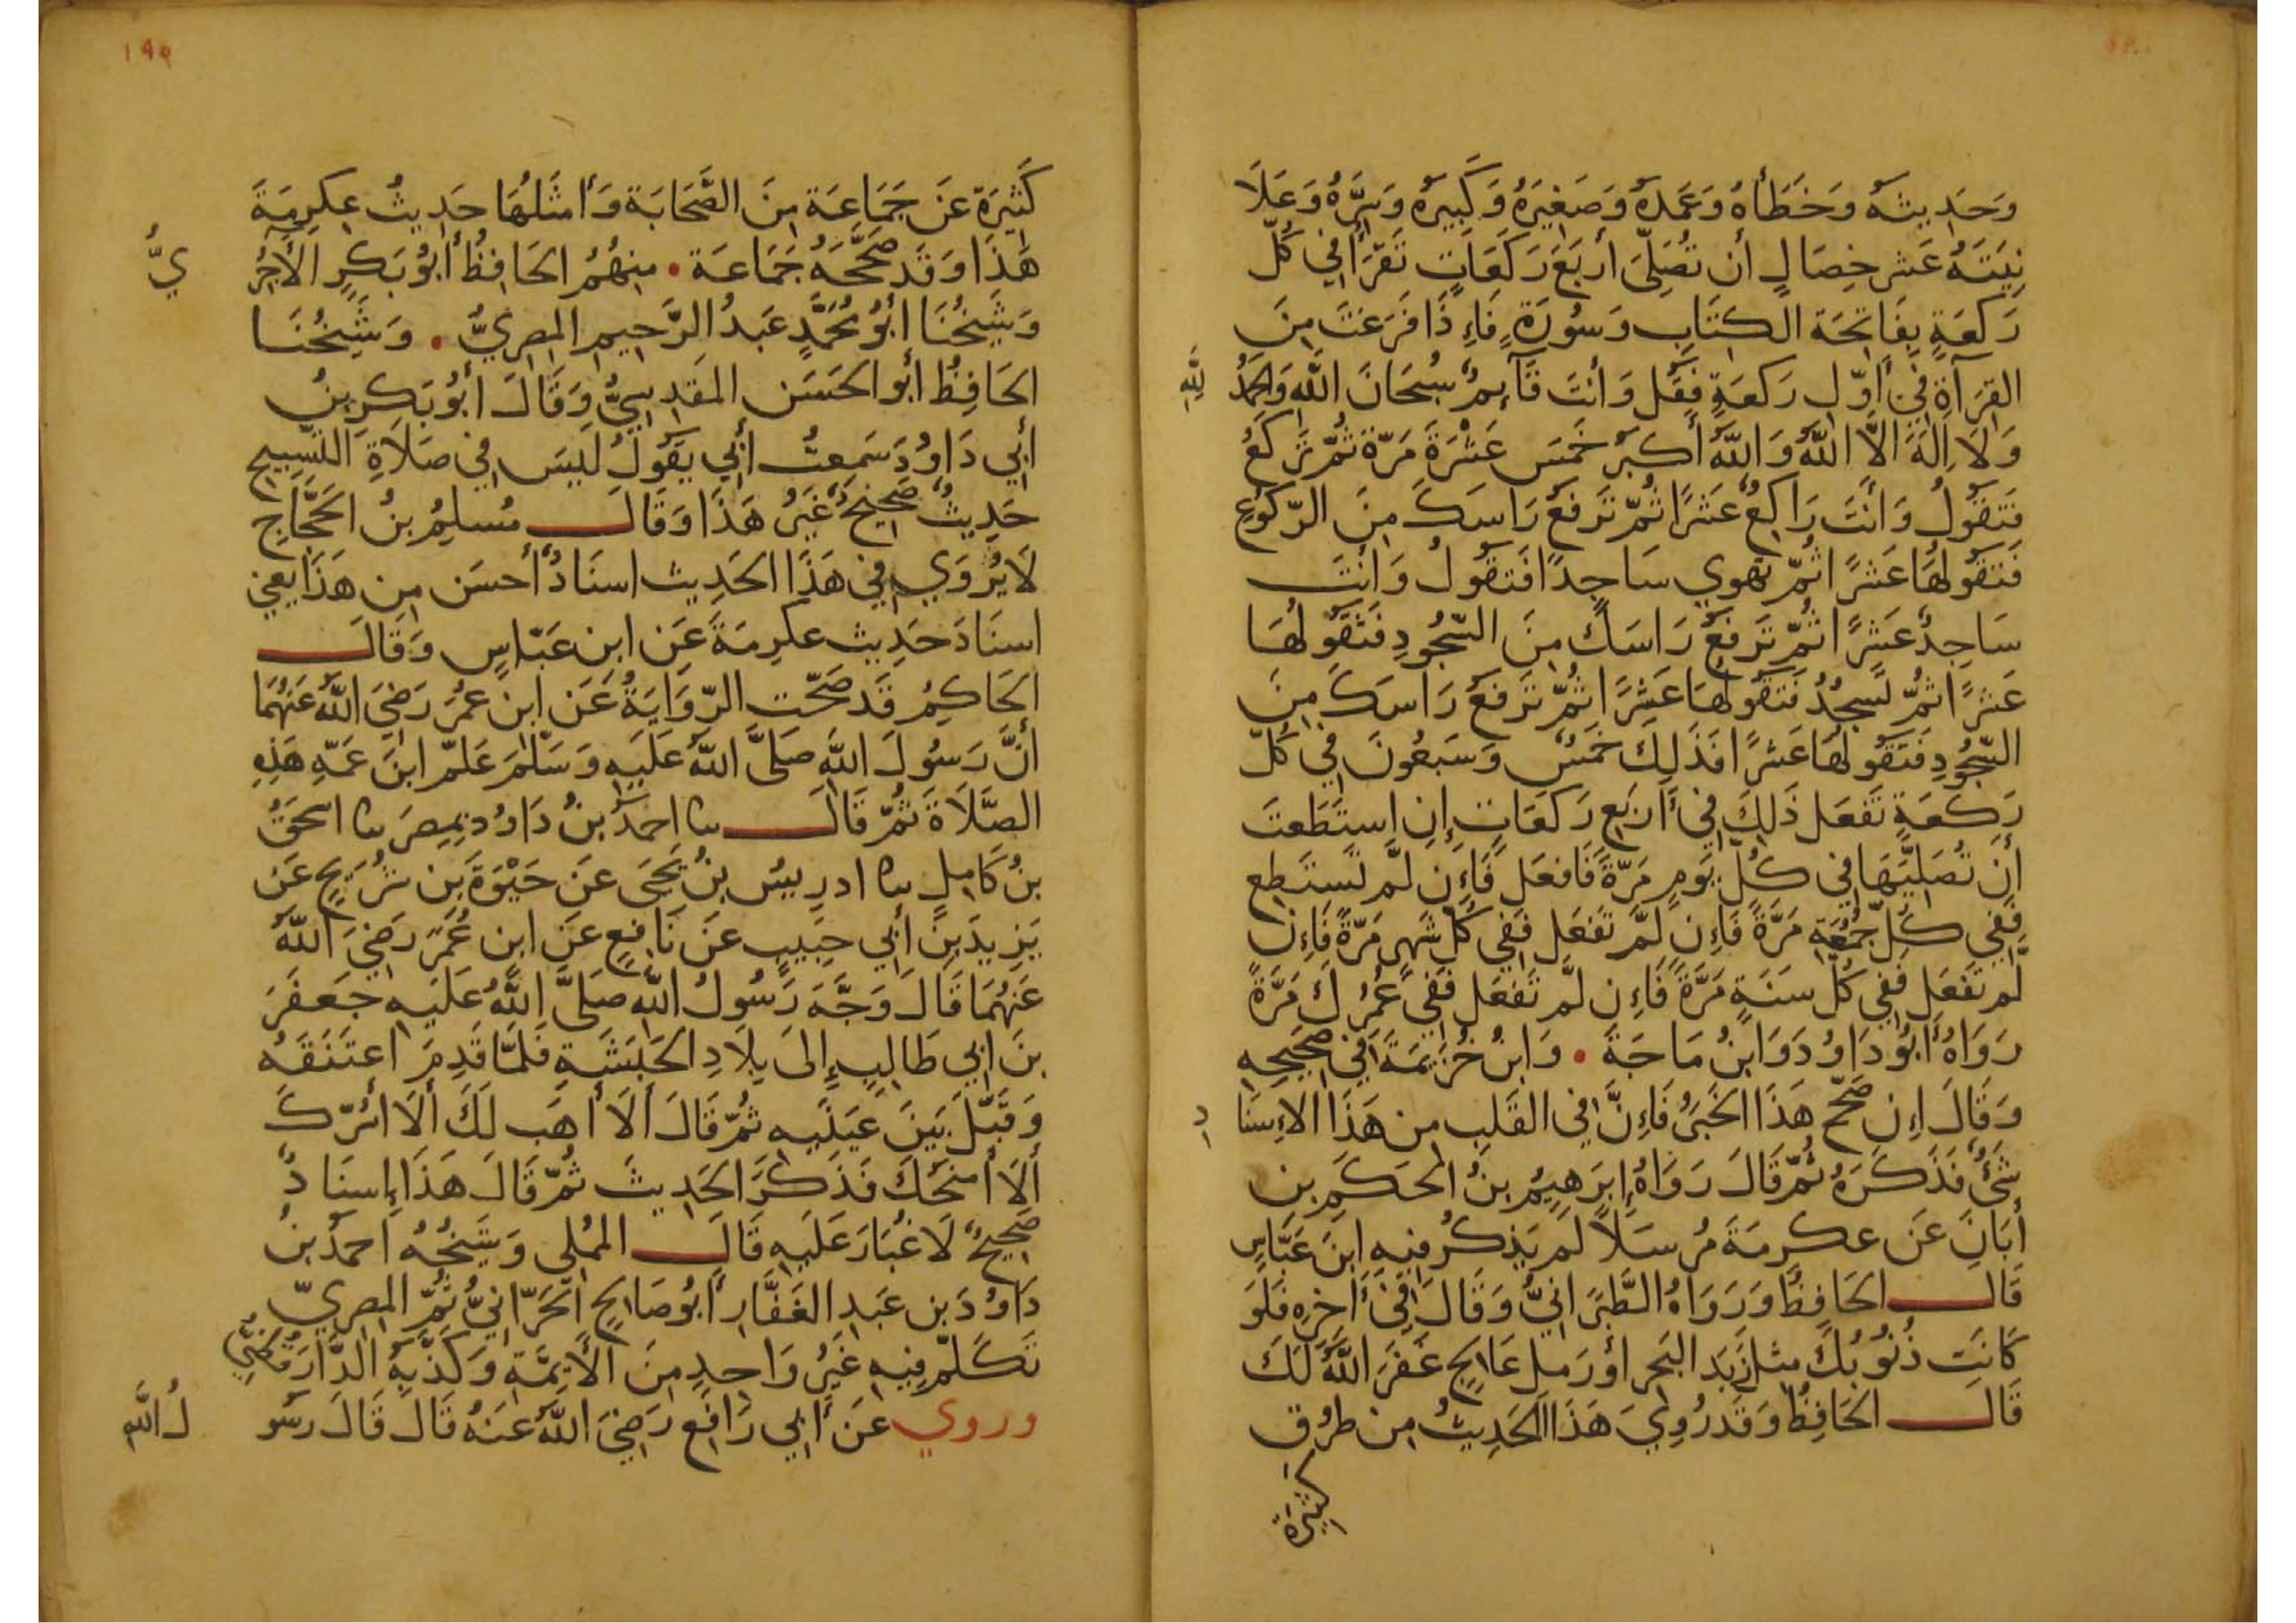 وَحَدِيثَهُ وَخَطَأَهُ وَعَمْدَهُ وَصَغِيرَهُ وَكَبِيرَهُ وَسِرَّهُ وَعَلَا
نِيَتَهُ عَشر خِصَالٍ أن تُصَلِّيَ أربَعَ رَكَعَاتٍ تَقرَأُ فِي كُلِّ
رَكعَةٍ بِفَاتِحَة الكتَابِ وَسُورَةٍ فَإِذَا فَرَغتَ مِنَ
القِرَآةِ فِي أَوّلِ رَكعَةٍ فَقُل وَأنتَ قَآئِمٌ سُبحَانَ اللَّه وَالحَمدُ لِلَّهِ
وَلَا إِلَهَ الَّا اللَّهُ وَاللَّهُ أَكبَرُ خَمسَ عَشْرَةَ مَرّةً ثُمّ تَركَعُ
فَتَقُولُ وَأَنتَ رَاكِعٌ عَشرًا ثُمّ تَرفَعُ رَاسَكَ مِنَ الرّكُوعِ
فَتَقُولُهَا عَشرًا ثُمّ تهوِي سَاجِدًا فَتقُولُ وَأنتَ
سَاجِدٌ عَشرًا ثُمّ تَرفَعُ رَاسَكَ مِنَ السّجُودِ فَتَقُولُهَا
عَشرًا ثُمَّ تَسجُدُ فَتَقُولُهَا عَشِرًا ثُمّ تَرفَعُ رَاسَكَ مِنَ
السّجُودِ فَتَقُولُهَا عَشرًا فَذَلِكَ خَمسٌ وَسَبعُونَ فِي كُلّ
رَكعَةٍ تَفعَل ذَلِكَ فِي أَربَعِ رَكعَاتٍ إِنِ استَطَعتَ
أَن تُصَلِّيَهَا فِي كُلّ يَومٍ مَرّةً فَافعَل فَإِن لَّم تَستَطِع
فَفِي كُلّ جُمُعَةٍ مَرَّةً فَإِن لَّم تَفعَل فَفِي كُلّ شَهرٍ مَرّةً فَإِن
لَّم تَفعَل فَفِي كُلّ سَنَةٍ مَرَّةً فَإِن لَّم تَفعَل فَفِي عُمُرِكَ مَرَّةً
رَوَاهُ أَبُو دَاوُدَ وَابنُ مَاجَةَ • وَابنُ خُزَيمَةَ فِي صَحِيحِهِ
وَقَالَ إِن صَحَّ هَذَا الخَبَرُ فَإِنَّ فِي القَلبِ مِن هَذَا الاِسنَا دِ
شَيءٌ فَذَكَرَهُ ثُمّ قَالَ رَوَاهُ إِبرَهِيمُ بنُ الحَكَمِ بنِ
أَبَانَ عَن عكرِمَةَ مُرسَلاً لَم يَذكُر فِيهِ ابنَ عَبَّاسٍ
قَالَ الحَافِظُ وَرَوَاهُ الطَّبَرَانِيُّ وَقَالَ فِي آخِرِهِ فَلَو
كَانَت ذُنُوبُكَ مثل زَبَدِ البَحر أو رَملِ عَالِجٍ غَفَرَ اللَّهُ لَكَ
قَالَ الحَافِظُ وَقَد رُوِيَ هَذَا الحَدِيثُ مِن طرُقٍ
كَثِيرَةٍ
١٩٥
كَثِيرَةٍ عَن جَمَاعَة مِنَ الصَّحَابَة وَأَمثَلُهَا حَدِيثُ عِكرِمَةَ
هَذَا وَقَد صَحَّحَهُ جَمَاعَة • مِنهُمُ الحَافِظُ أَبُو بَكرٍ الآجُرِّ يُّ
وَشَيخُنَا أَبُو مُحَمَّدٍ عَبدُ الرَّحِيمِ المِصرِيُّ • وَشَيخُنَا
الحَافِظُ أبو الحَسَن المَقدِسِيُّ وَقَالَ أَبُو بَكرِ بنُ
أَبِي دَاوُدَ سَمِعتُ أَبِي يَقُولُ لَيسَ فِي صَلَاةِ التَّسبِيحِ
حَدِيثٌ صَحِيحٌ غَيرُ هَذَا وَقَالَ مُسلِمُ بنُ الحَجَّاجِ
لَا يُروَي فِي هَذَا الحَدِيث اسنَادٌ أَحسَن مِن هَذَا يَعنِي
اسنَادَ حَدِيث عكرِمَةَ عَن ابنِ عَبّاسٍ وَقَالَ
الحَاكِمُ قَد صَحّت الرّوَايَةُ عَن ابنِ عُمَرَ رَضِيَ اللَّهُ عَنهُمَا
أَنَّ رَسُولَ اللَّهِ صَلَّى اللَّهُ عَلَيهِ وَسَلَّمَ عَلّمَ ابنَ عَمّهِ هَذِهِ
الصَّلَاةَ ثُمّ قَالَ ثنا احمَدُ بنُ دَاوُد بِمِصرَ ثنا اسحَقُ
بنُ كَامِلٍ ثنا ادرِيسُ بنُ يَحيَى عَن حَيْوَةَ بنِ شُرَيحٍ عَن
يَزِيدَ بنِ أَبِي حَبِيبٍ عَن نَافِعٍ عَنِ ابنِ عُمَرَ رَضِيَ اللَّهُ
عَنهُمَا قَالَ وَجَّهَ رَسُولُ اللَّهِ صَلَّى اللَّهُ عَلَيهِ جَعفَرَ
بنَ ابِي طَالِبٍ إِلَى بِلَادِ الحَبَشَةِ فَلَمّا قَدِمَ اعتَنَقَهُ
وَقَبّلَ بَينَ عَينَيهِ ثُمّ قَالَ أَلَا أَهَب لَكَ أَلَا ائسُرّكَ
أَلَا أَمنَحُكَ فَذَكَرَ الحَدِيثَ ثُمّ قَالَ هَذَا إِسنَادٌ
صَحِيحٌ لَا غُبَارَ عَلَيهِ قَالَ المُملِي وَشَيخُهُ أَحمَدُ بنُ
دَاوُدَ بن عَبدِ الغَفَّارِ أَبُو صَالِحٍ الحَرَّانِيُّ ثُمّ المِصرِيّ
تَكَلّمَ فِيهِ غَيرُ وَاحِدٍ مِنَ الأَيِمَّةِ وَكَذَّبَهُ الدَّارَقُطنِيُّ
وروي عَن أَبِي رَافِع رَضِيَ اللَّهُ عَنهُ قَالَ قَالَ رَسُو لُ اللَّهِ